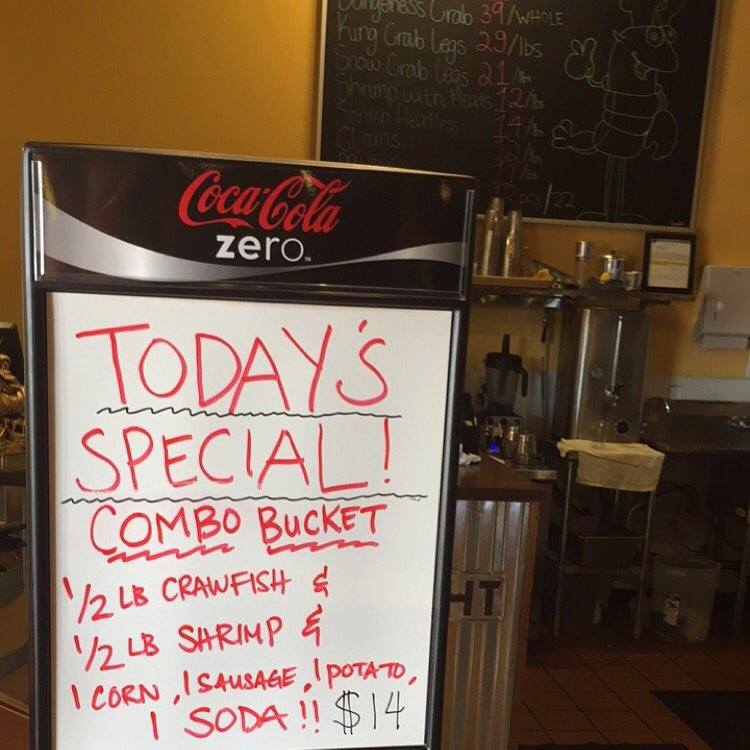 Dungeness Crab 39/WHOLE
King Crab Legs 29/lbs
Snow Crab Legs 21/lbs
Shrimp with Heads 12/lbs
Shrimp Headless 14/lbs
Clams
pcs/22
Coca-Cola
zero
TODAY'S
SPECIAL!
COMBO BUCKET
1/2 LB CRAWFISH &
1/2 LB SHRIMP &
1 CORN, 1 SAUSAGE, 1 POTATO,
1 SODA!! $14
HT